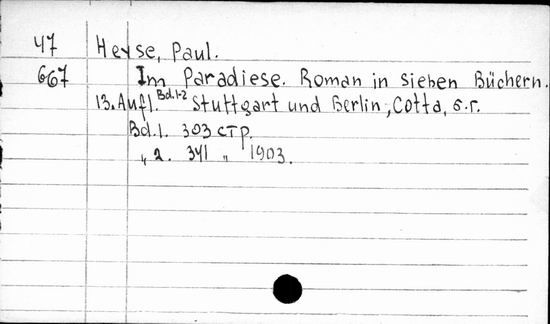 47 Heyse, Paul.
667 Im Paradiese. Roman in sieben Büchern.
13. Aufl. Bd.1-2 Stuttgart und Berlin, Cotta, s.г.
Bd.1. 303 стр.
„ 2. 341 „ 1903.